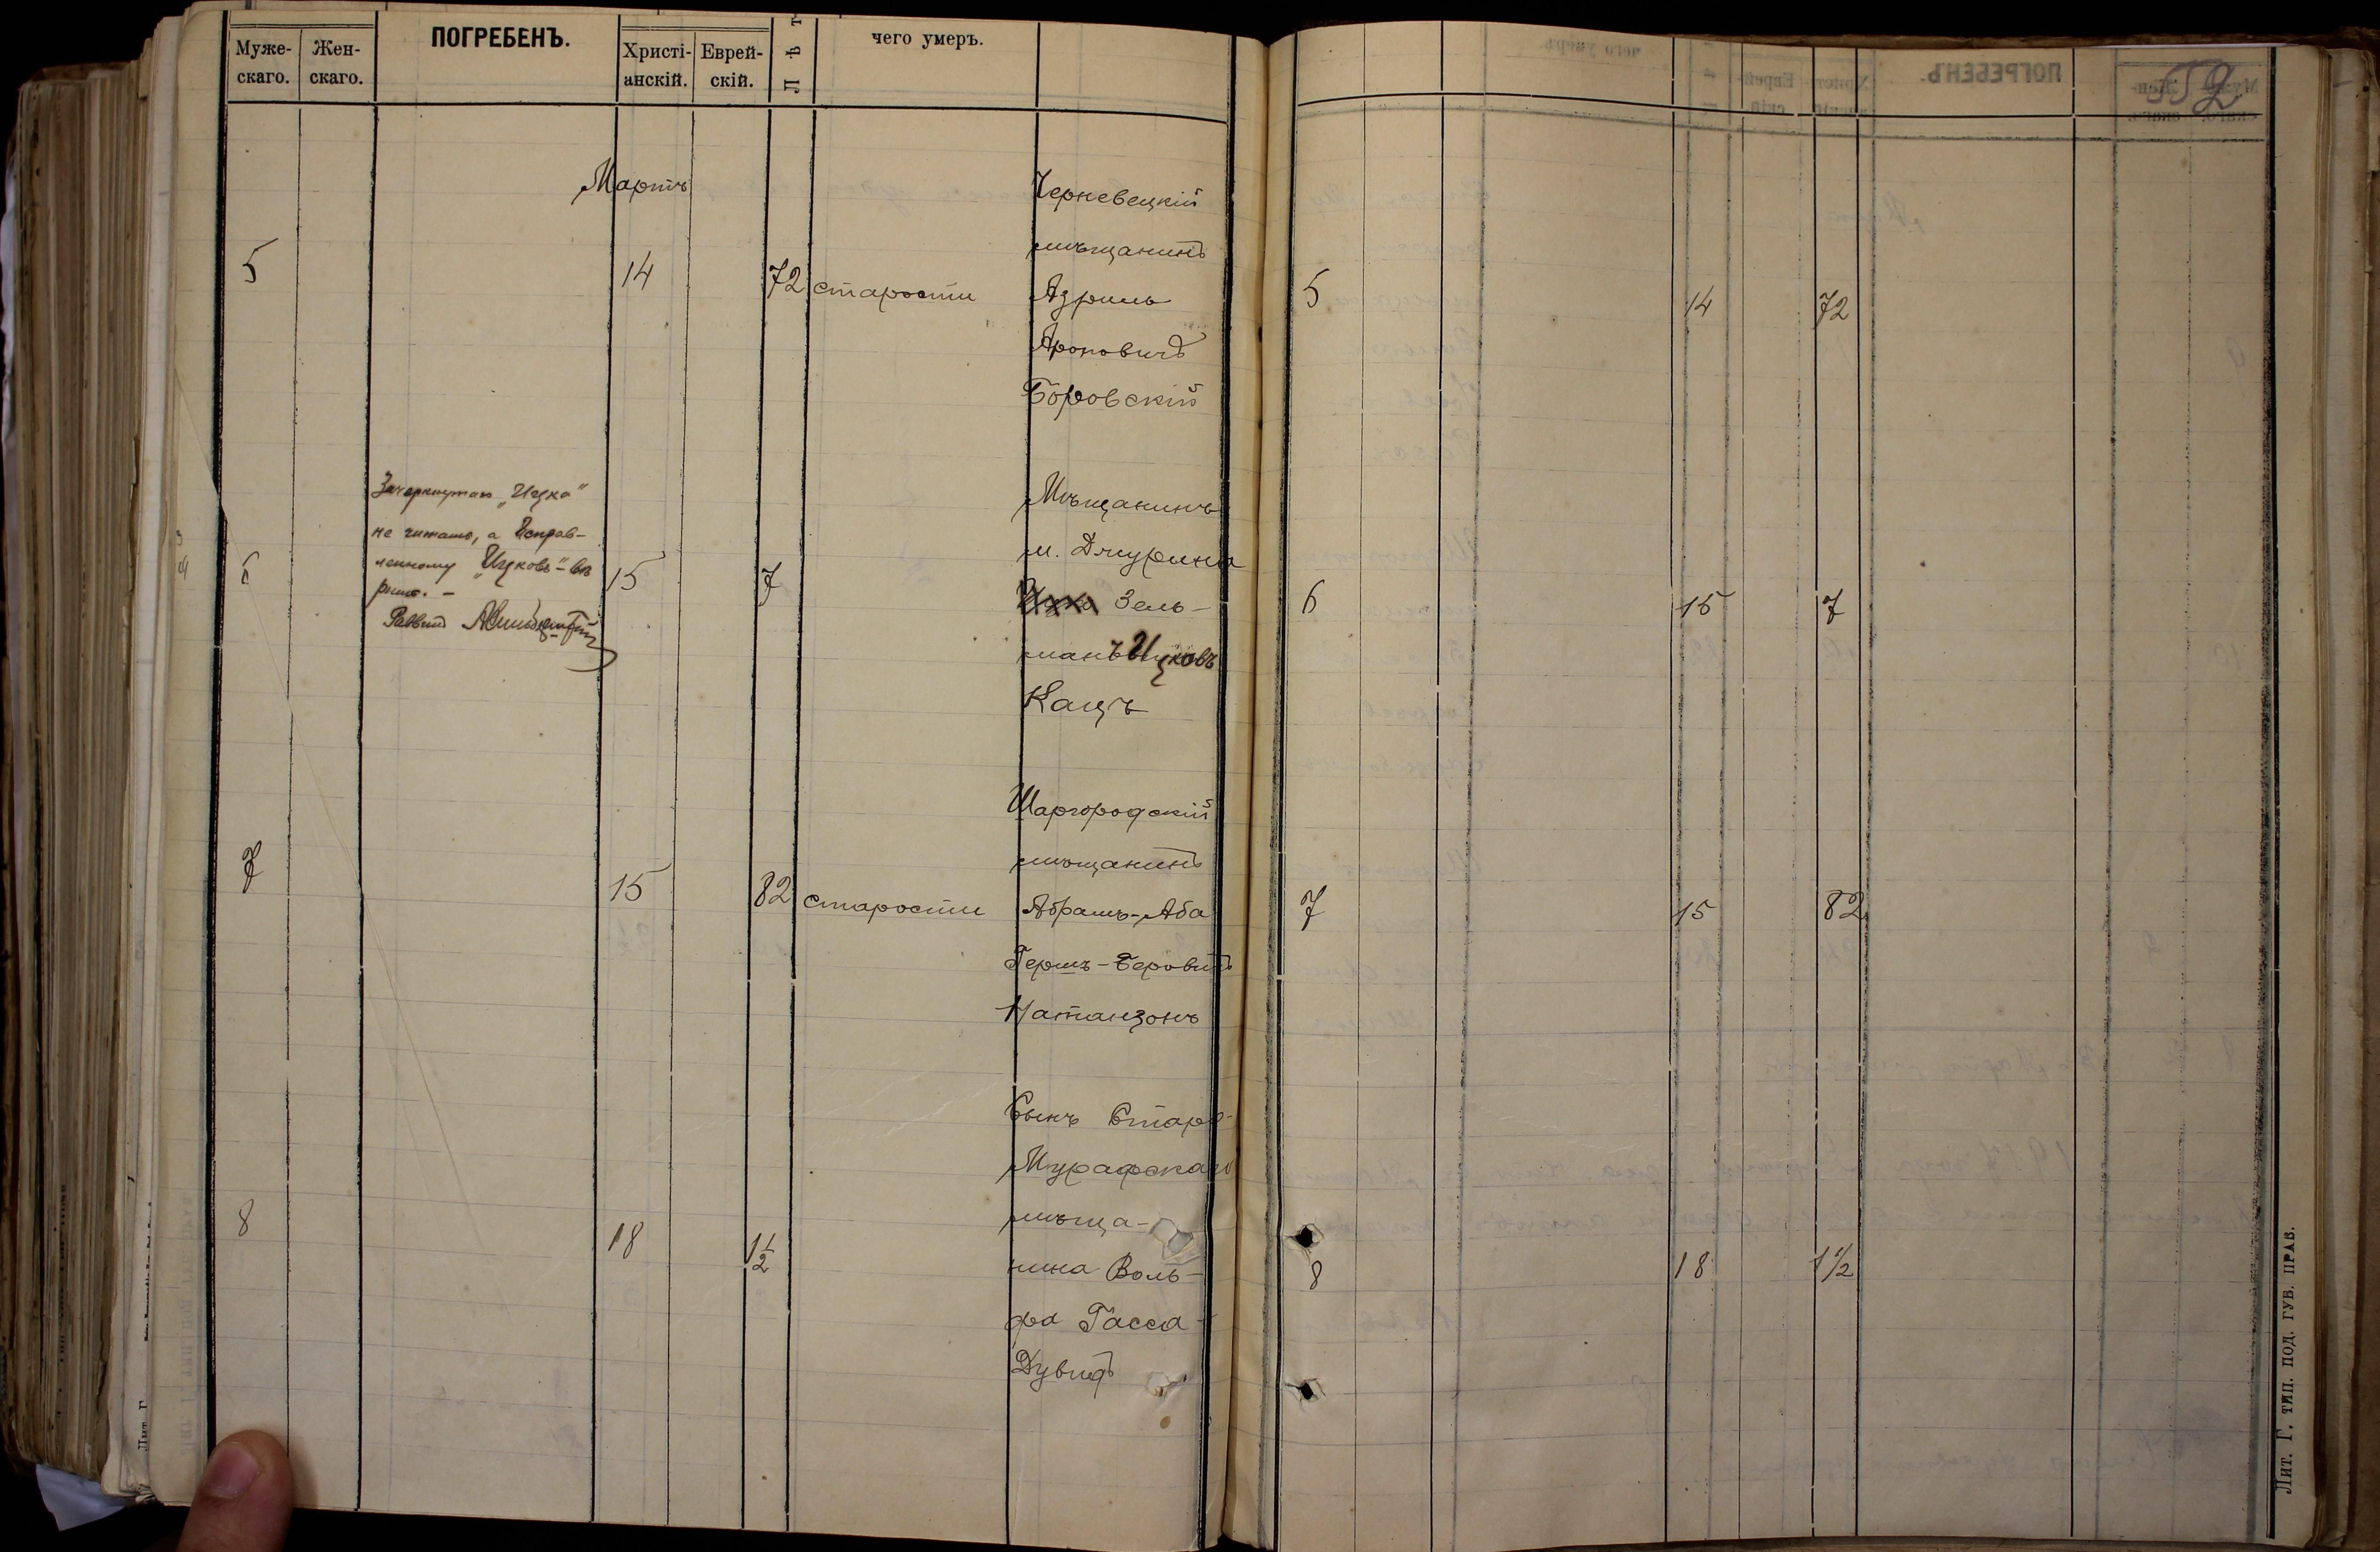 Муже-
скаго.
Жен-
скаго.
ПОГРЕБЕНЪ.
Христі-
анскій.
Еврей-
скій.
Л ѣ т
чего умеръ.
Мартъ
5
14
72
старости
Черневецкій
мѣщанинъ
Азриль
Ароновичъ
Боровскій
Зачеркнутаго „Ицко"
не читать, а Исправ-
ленному „Ицковъ" - вѣ
рить. -
Раввинъ
6
15
7
Мѣщанинъ
м. Джурина
Зель-
манъ Ицковъ
Кацъ
7
15
82
старости
Шаргородскій
мѣщанинъ
Абрамъ-Аба
Гершъ-Беровичъ
Натанзонъ
8
18
1½
Сынъ Старо-
Мурафскаго
мѣща-
нина Воль-
фа Гасса -
Дувидъ
552
5
14
72
6
15
7
7
15
82
8
18
1½
Лит. Г. тип. под. губ. прав.